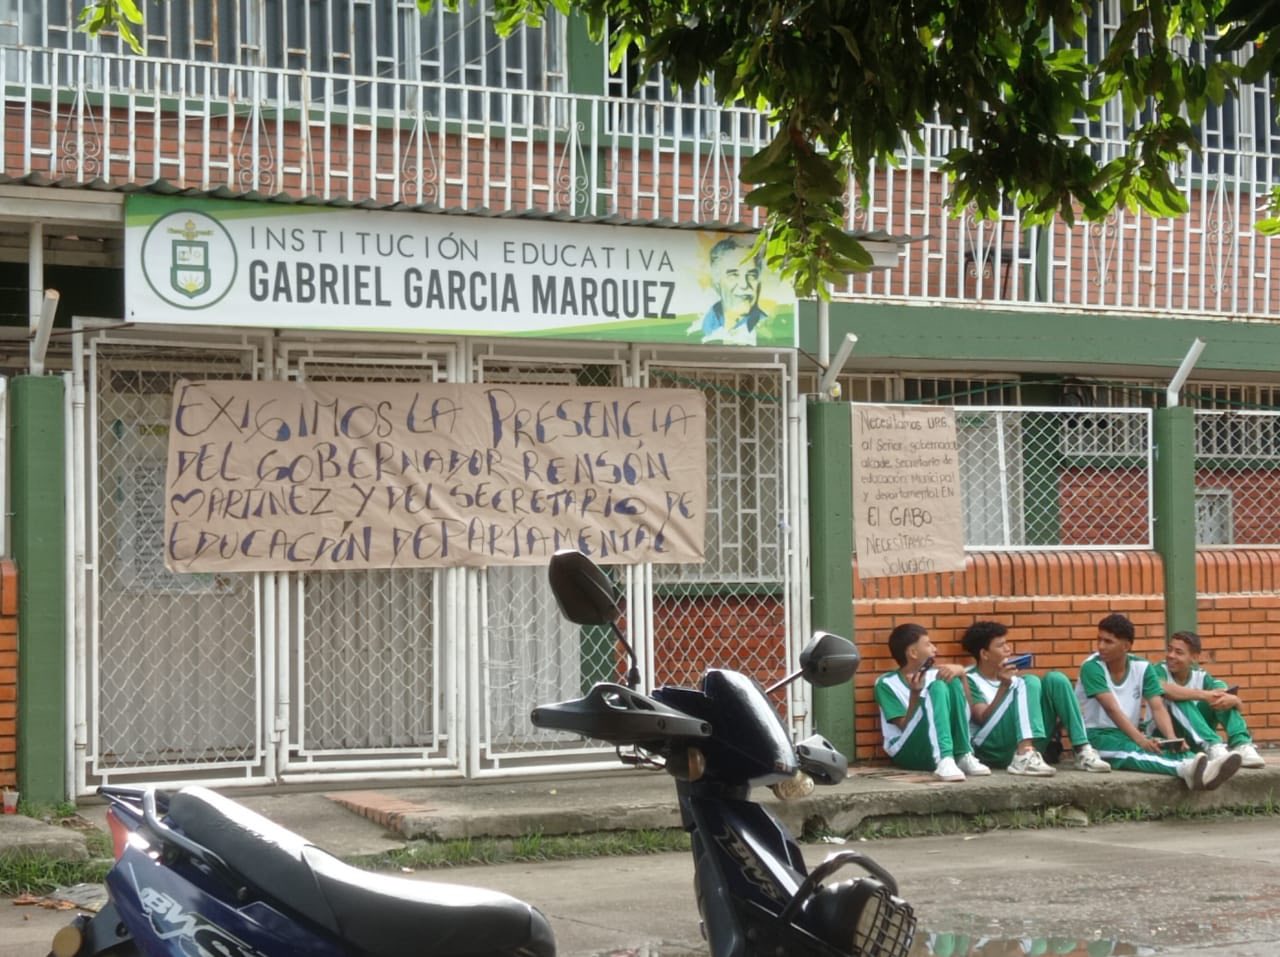 INSTITUCIÓN EDUCATIVA
GABRIEL GARCIA MARQUEZ
EXIGIMOS LA PRESENCIA
DEL GOBERNADOR RENSÓN
MARTINEZ Y DEL SECRETARIO DE
EDUCACIÓN DEPARTAMENTAL
Necesitamos URG.
al Señor gobernador
alcade, Secretario de
educación Municipal
y departamental EN
El GABO
NECESITAMOS
Solución
BWS
BWS